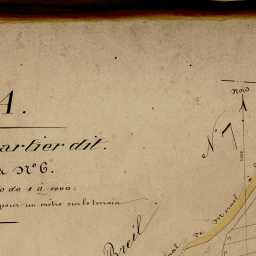 Nord
A.
artier dit.
N° 6.
de 1 à 1000.
pour un mètre sur le terrain
N° 7
Breil
de